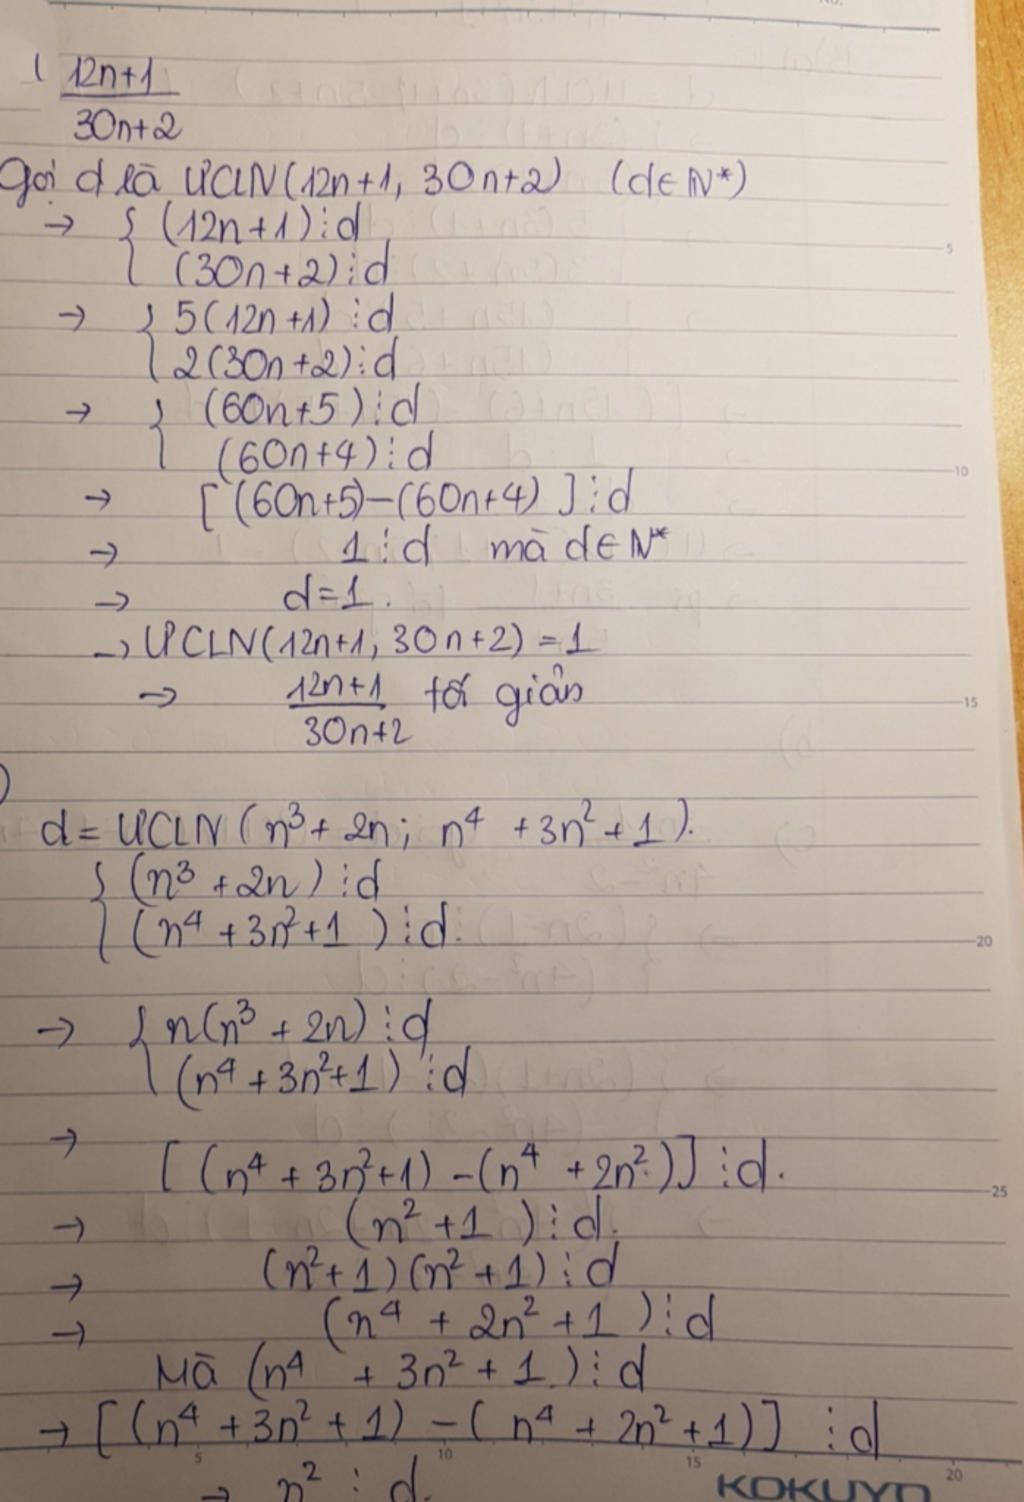 12n+1
30n+2
Gọi d là ƯCLN(12n+1, 30n+2) (d∈N*)
→ { (12n+1)⋮d
(30n+2)⋮d
→ { 5(12n+1)⋮d
2(30n+2)⋮d
→ { (60n+5)⋮d
(60n+4)⋮d
→ [(60n+5)-(60n+4)]⋮d
→ 1⋮d mà d∈N*
→ d=1.
→ ƯCLN(12n+1, 30n+2) = 1
→ 12n+1 tối giản
30n+2
)
d = ƯCLN(n³ + 2n; n⁴ + 3n² + 1).
{ (n³ + 2n)⋮d
(n⁴ + 3n² + 1)⋮d.
→ { n(n³ + 2n)⋮d
(n⁴ + 3n² + 1)⋮d
→
[(n⁴ + 3n² + 1) - (n⁴ + 2n²)]⋮d.
→ (n² + 1)⋮d.
→ (n² + 1)(n² + 1)⋮d
→ (n⁴ + 2n² + 1)⋮d
Mà (n⁴ + 3n² + 1)⋮d
→ [(n⁴ + 3n² + 1) - (n⁴ + 2n² + 1)]⋮d
→ n²⋮d.
5
10
15
20
25
5 10 15 20
KOKUYO